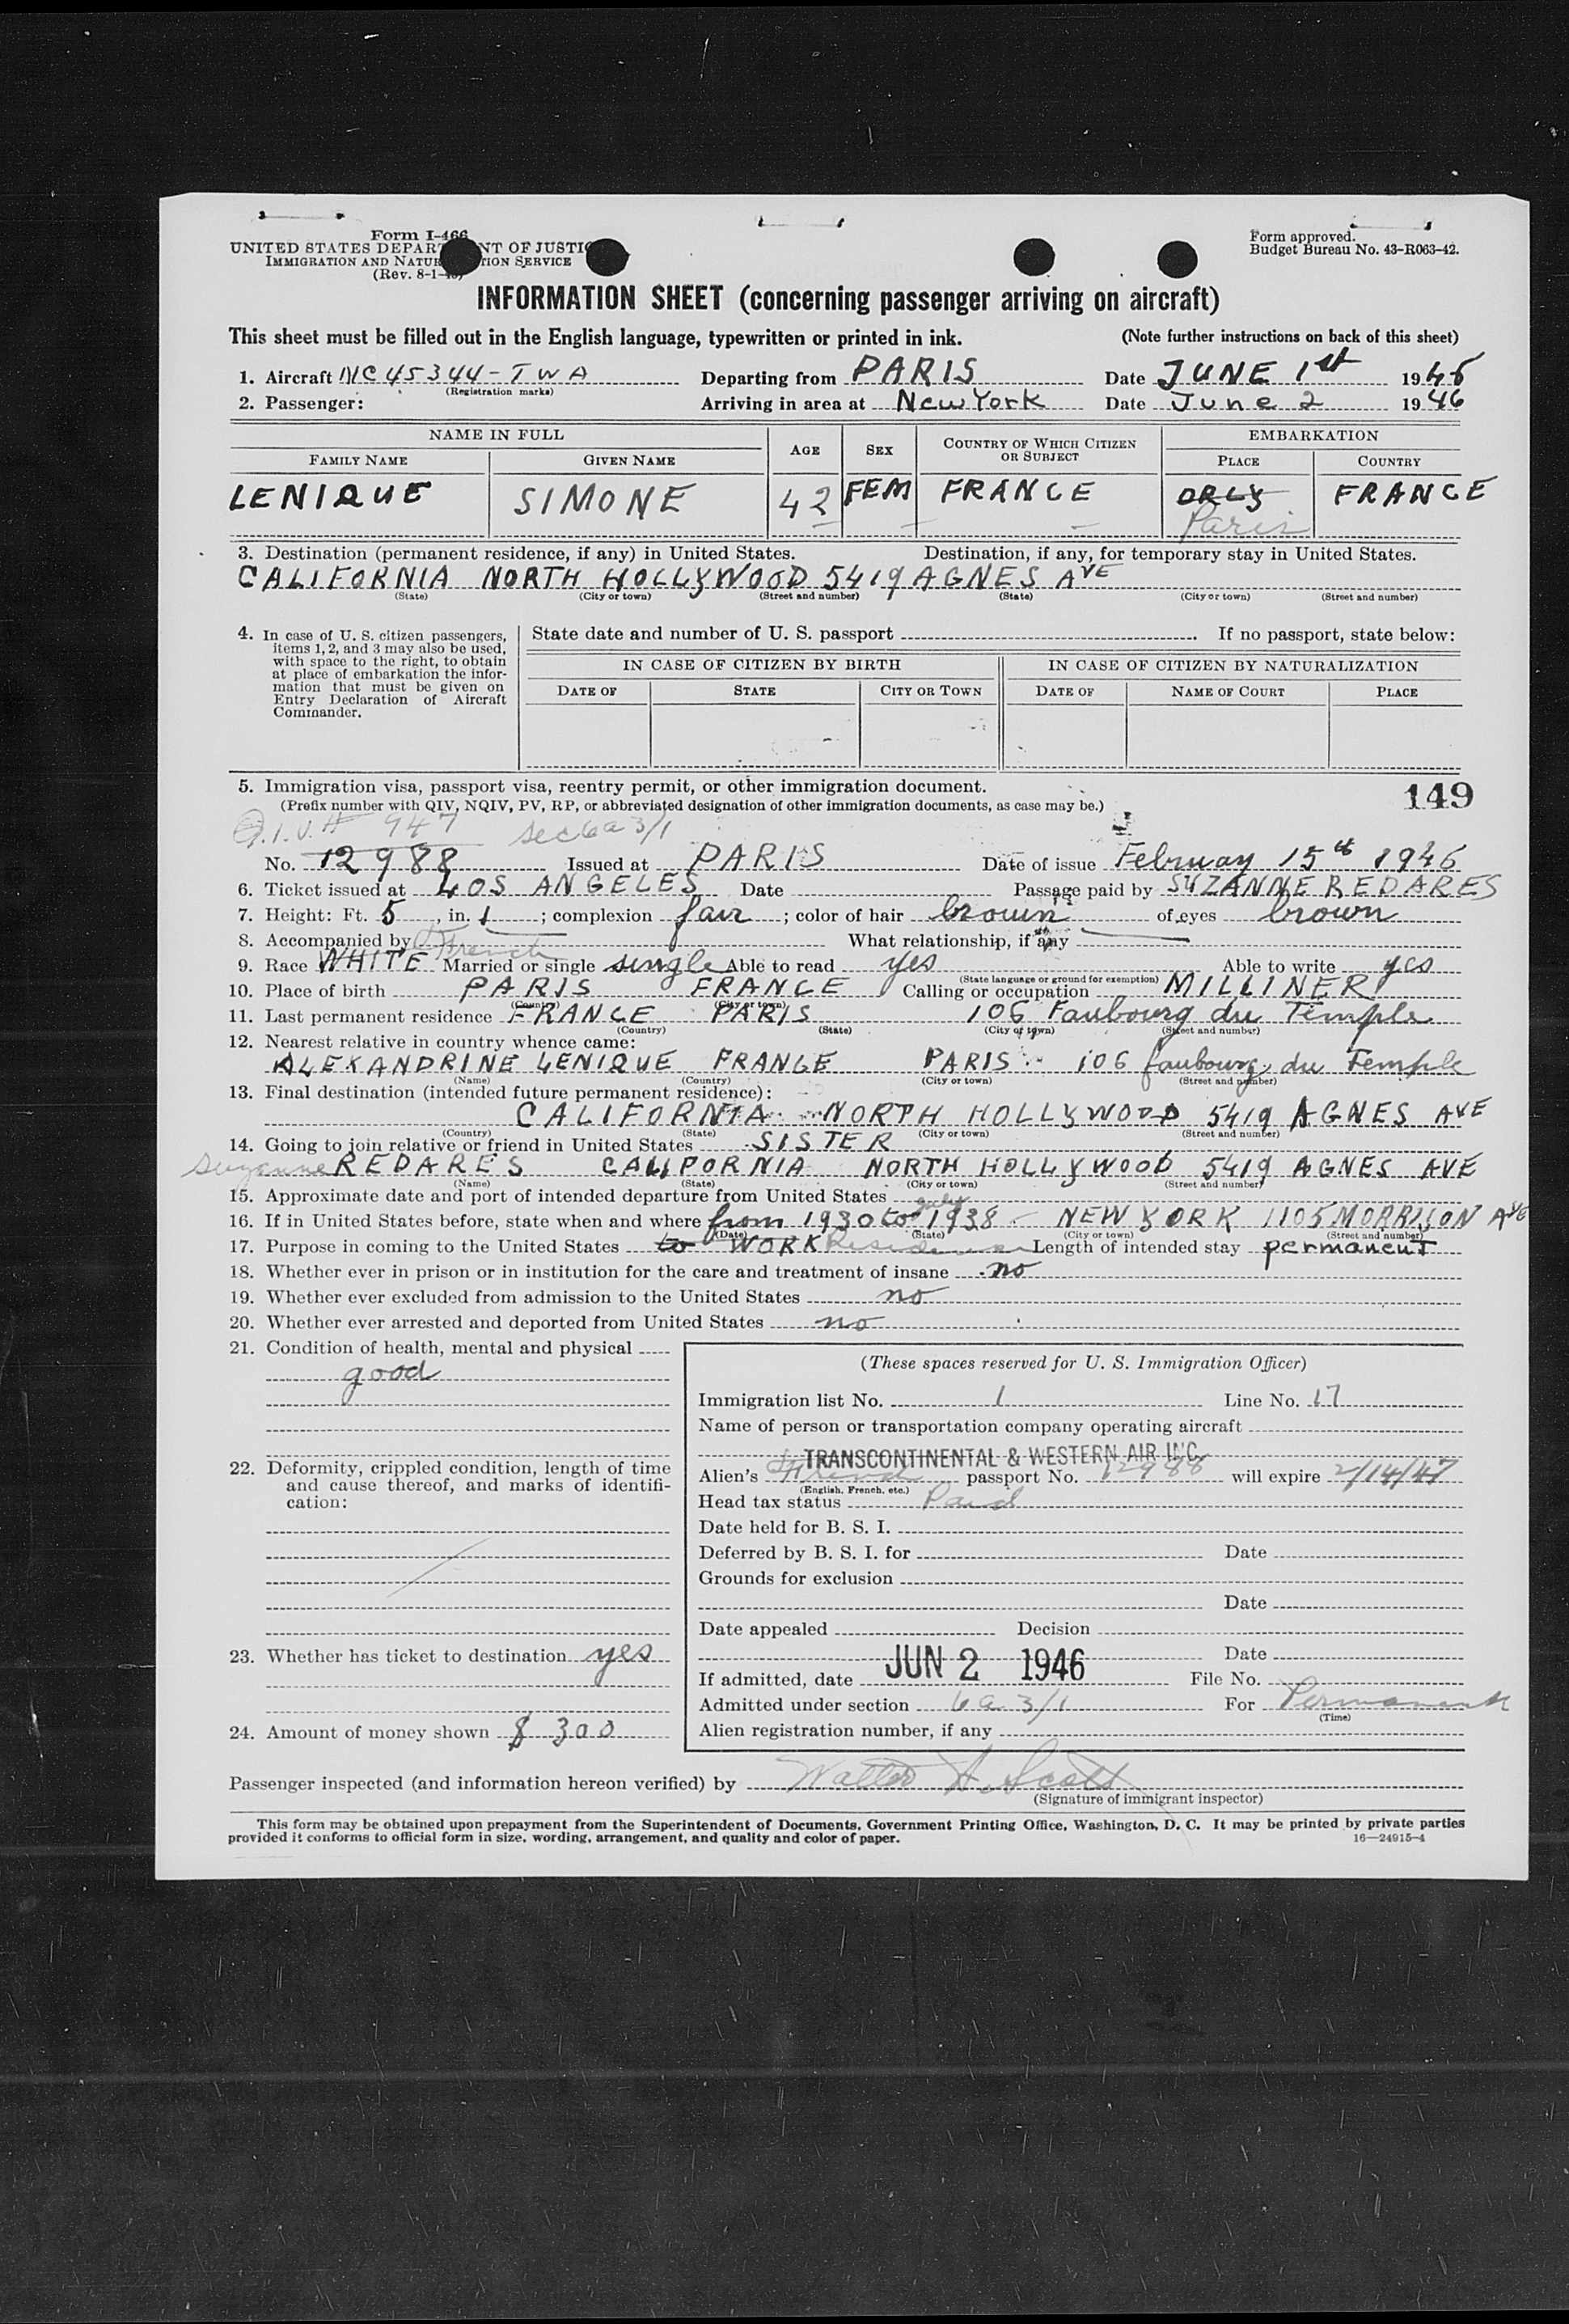 Form I-466
UNITED STATES DEPARTMENT OF JUSTICE
IMMIGRATION AND NATURALIZATION SERVICE
(Rev. 8-1-
Form approved.
Budget Bureau No. 43-R063-42.
INFORMATION SHEET (concerning passenger arriving on aircraft)
This sheet must be filled out in the English language, typewritten or printed in ink. (Note further instructions on back of this sheet)
1. Aircraft NC45344-TWA Departing from PARIS Date JUNE 1st 1946
(Registration marks)
2. Passenger: Arriving in area at New York Date June 2 1946
NAME IN FULL AGE SEX COUNTRY OF WHICH CITIZEN OR SUBJECT EMBARKATION
FAMILY NAME GIVEN NAME PLACE COUNTRY
LENIQUE SIMONE 42 FEM FRANCE ORLY FRANCE
Paris
3. Destination (permanent residence, if any) in United States. Destination, if any, for temporary stay in United States.
CALIFORNIA NORTH HOLLYWOOD 5419 AGNES AVE
(State) (City or town) (Street and number) (State) (City or town) (Street and number)
4. In case of U. S. citizen passengers, items 1, 2, and 3 may also be used, with space to the right, to obtain at place of embarkation the information that must be given on Entry Declaration of Aircraft Commander.
State date and number of U. S. passport If no passport, state below:
IN CASE OF CITIZEN BY BIRTH IN CASE OF CITIZEN BY NATURALIZATION
DATE OF STATE CITY OR TOWN DATE OF NAME OF COURT PLACE
5. Immigration visa, passport visa, reentry permit, or other immigration document. 149
(Prefix number with QIV, NQIV, PV, RP, or abbreviated designation of other immigration documents, as case may be.)
Q.I.V.# 947 sec 6a 3/1
No. 12988 Issued at PARIS Date of issue February 15th 1946
6. Ticket issued at LOS ANGELES Date Passage paid by SUZANNE REDARES
7. Height: Ft. 5, in. 1; complexion fair; color of hair brown of eyes brown
8. Accompanied by What relationship, if any
French
9. Race WHITE Married or single single Able to read yes Able to write yes
(State language or ground for exemption)
10. Place of birth PARIS FRANCE Calling or occupation MILLINER
(Country) (City or town)
11. Last permanent residence FRANCE PARIS 106 Faubourg du Temple
(Country) (State) (City or town) (Street and number)
12. Nearest relative in country whence came:
ALEXANDRINE LENIQUE FRANCE PARIS 106 faubourg du Temple
(Name) (Country) (City or town) (Street and number)
13. Final destination (intended future permanent residence):
CALIFORNIA NORTH HOLLYWOOD 5419 AGNES AVE
(Country) (State) (City or town) (Street and number)
14. Going to join relative or friend in United States SISTER
Suzanne REDARES CALIFORNIA NORTH HOLLYWOOD 5419 AGNES AVE
(Name) (State) (City or town) (Street and number)
15. Approximate date and port of intended departure from United States
16. If in United States before, state when and where from 1930 to july 1938 - NEW YORK 1105 MORRISON AVE
(Date) (State) (City or town) (Street and number)
17. Purpose in coming to the United States to WORK Residence Length of intended stay permanent
18. Whether ever in prison or in institution for the care and treatment of insane no
19. Whether ever excluded from admission to the United States no
20. Whether ever arrested and deported from United States no
21. Condition of health, mental and physical
good
22. Deformity, crippled condition, length of time and cause thereof, and marks of identification:
23. Whether has ticket to destination yes
24. Amount of money shown $ 300
(These spaces reserved for U. S. Immigration Officer)
Immigration list No. 1 Line No. 17
Name of person or transportation company operating aircraft
TRANSCONTINENTAL & WESTERN AIR INC.
Alien's French passport No. 12988 will expire 2/14/47
(English, French, etc.)
Head tax status Paid
Date held for B. S. I.
Deferred by B. S. I. for Date
Grounds for exclusion
Date
Date appealed Decision
Date
If admitted, date JUN 2 1946 File No.
Admitted under section 6a 3/1 For Permanent
(Time)
Alien registration number, if any
Passenger inspected (and information hereon verified) by Walter A. Scott
(Signature of immigrant inspector)
This form may be obtained upon prepayment from the Superintendent of Documents, Government Printing Office, Washington, D. C. It may be printed by private parties
provided it conforms to official form in size, wording, arrangement, and quality and color of paper. 16—24915-4